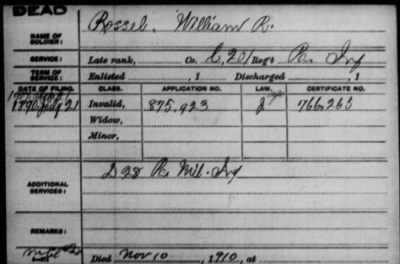 DEAD
NAME OF SOLDIER: Rossel. William R.
SERVICE: Late rank, Co. C, 201 Reg't Pa Inf
TERM OF SERVICE: Enlisted , 1 Discharged , 1
DATE OF FILING. CLASS. APPLICATION NO. LAW. CERTIFICATE NO.
1890 July 21 Invalid, 875.923 J 766.265
Widow,
Minor,
ADDITIONAL SERVICES: D 28 Pa Mil. Inf
REMARKS:
Died Nov 10, 1910, at